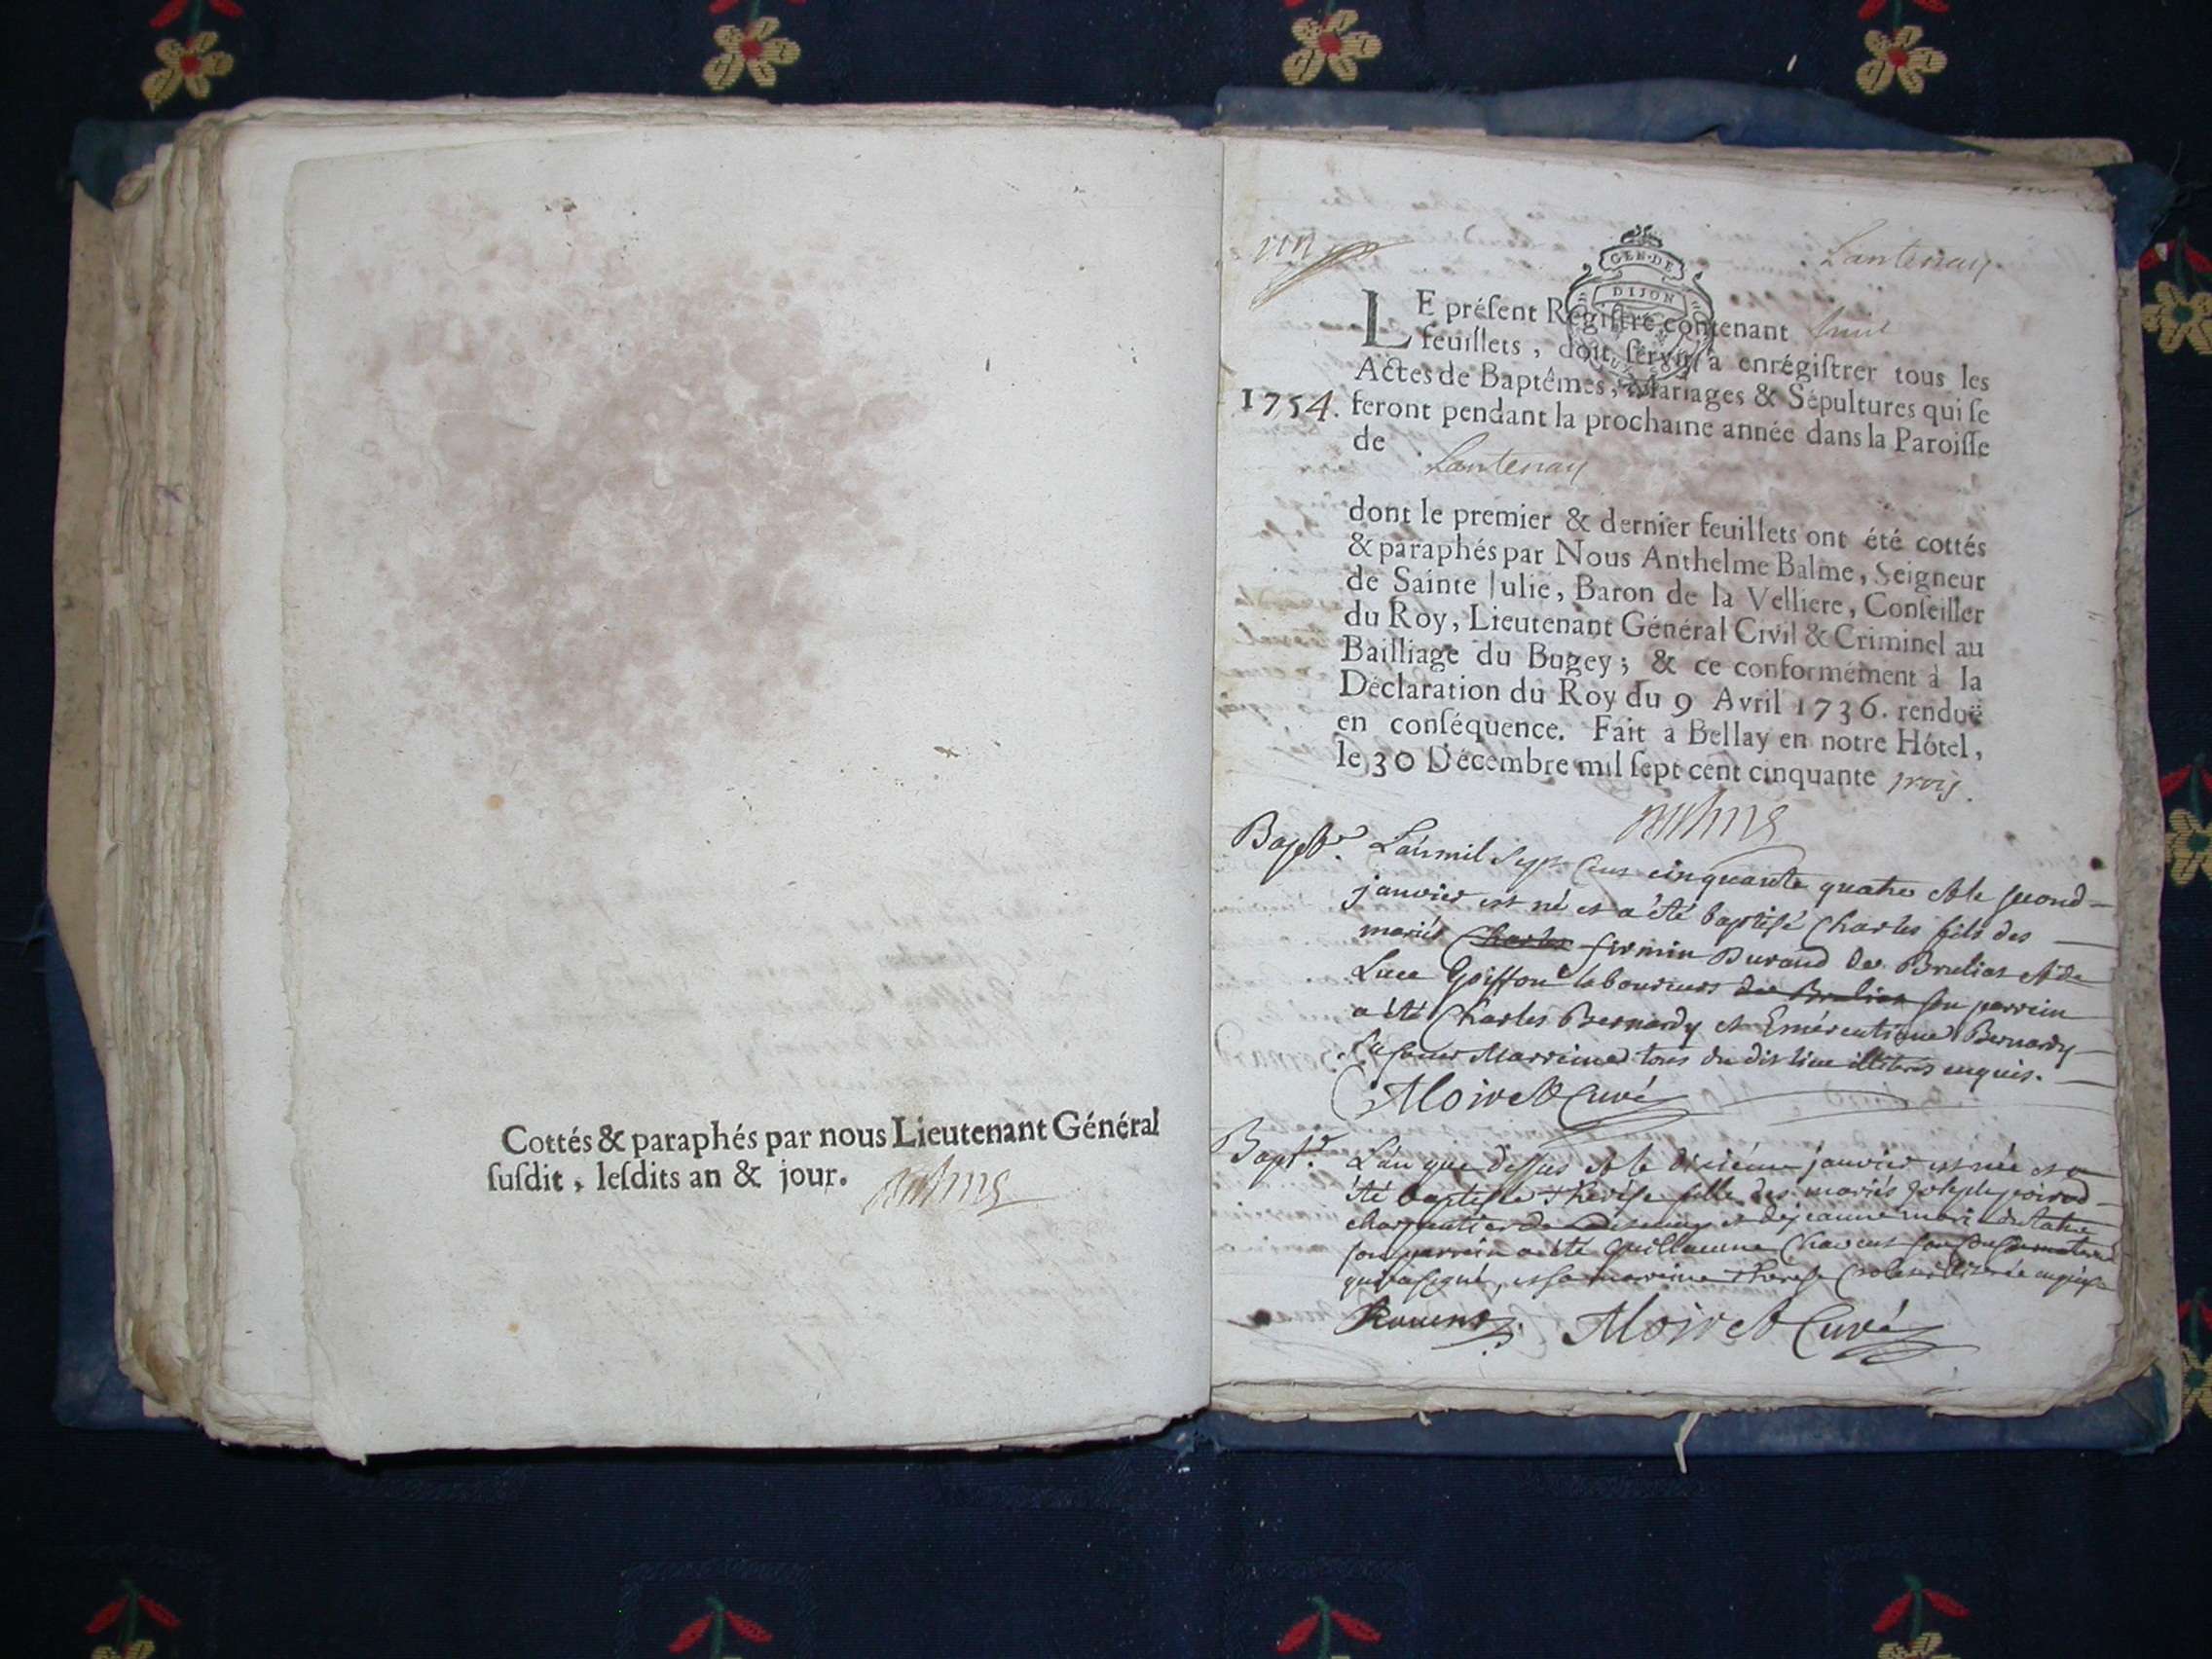 Cottés & paraphés par nous Lieutenant Général
ſuſdit, leſdits an & jour.
Lantenay
GEN·DE
DIJON
LE préſent Regiſtre contenant huit
feuillets, doit ſervir à enrégiſtrer tous les
Actes de Baptêmes, Mariages & Sépultures qui ſe
1754. feront pendant la prochaine année dans la Paroiſſe
de Lantenay
dont le premier & dernier feuillets ont été cottés
& paraphés par Nous Anthelme Balme, Seigneur
de Sainte Julie, Baron de la Velliere, Conſeiller
du Roy, Lieutenant Général Civil & Criminel au
Bailliage du Bugey; & ce conformément à la
Déclaration du Roy du 9 Avril 1736. renduë
en conſéquence. Fait a Bellay en notre Hôtel,
le 30 Décembre mil ſept cent cinquante trois.
Bapt. L'an mil sept cens cinquante quatre et le second
janvier est né et a été baptisé Charles fils des
mariés Charles firmin Durand de Brulias et de
Luce Goiffon laboureurs de Brulias son parrein
a été Charles Bernardy et Emérentianne Bernardy
sa soeur Marreine tous du dit lieu illiterés enquis.
Moiret Curé
Bapt. L'an que dessus et le dixiéme janvier est née et a
été baptisée Thérése fille des mariés Joseph
charpentier de et de jeanne
son parrein a été Guillaume Chavent son
qui a signé, et sa marreine Therese illiterée enquise
Moiret Curé